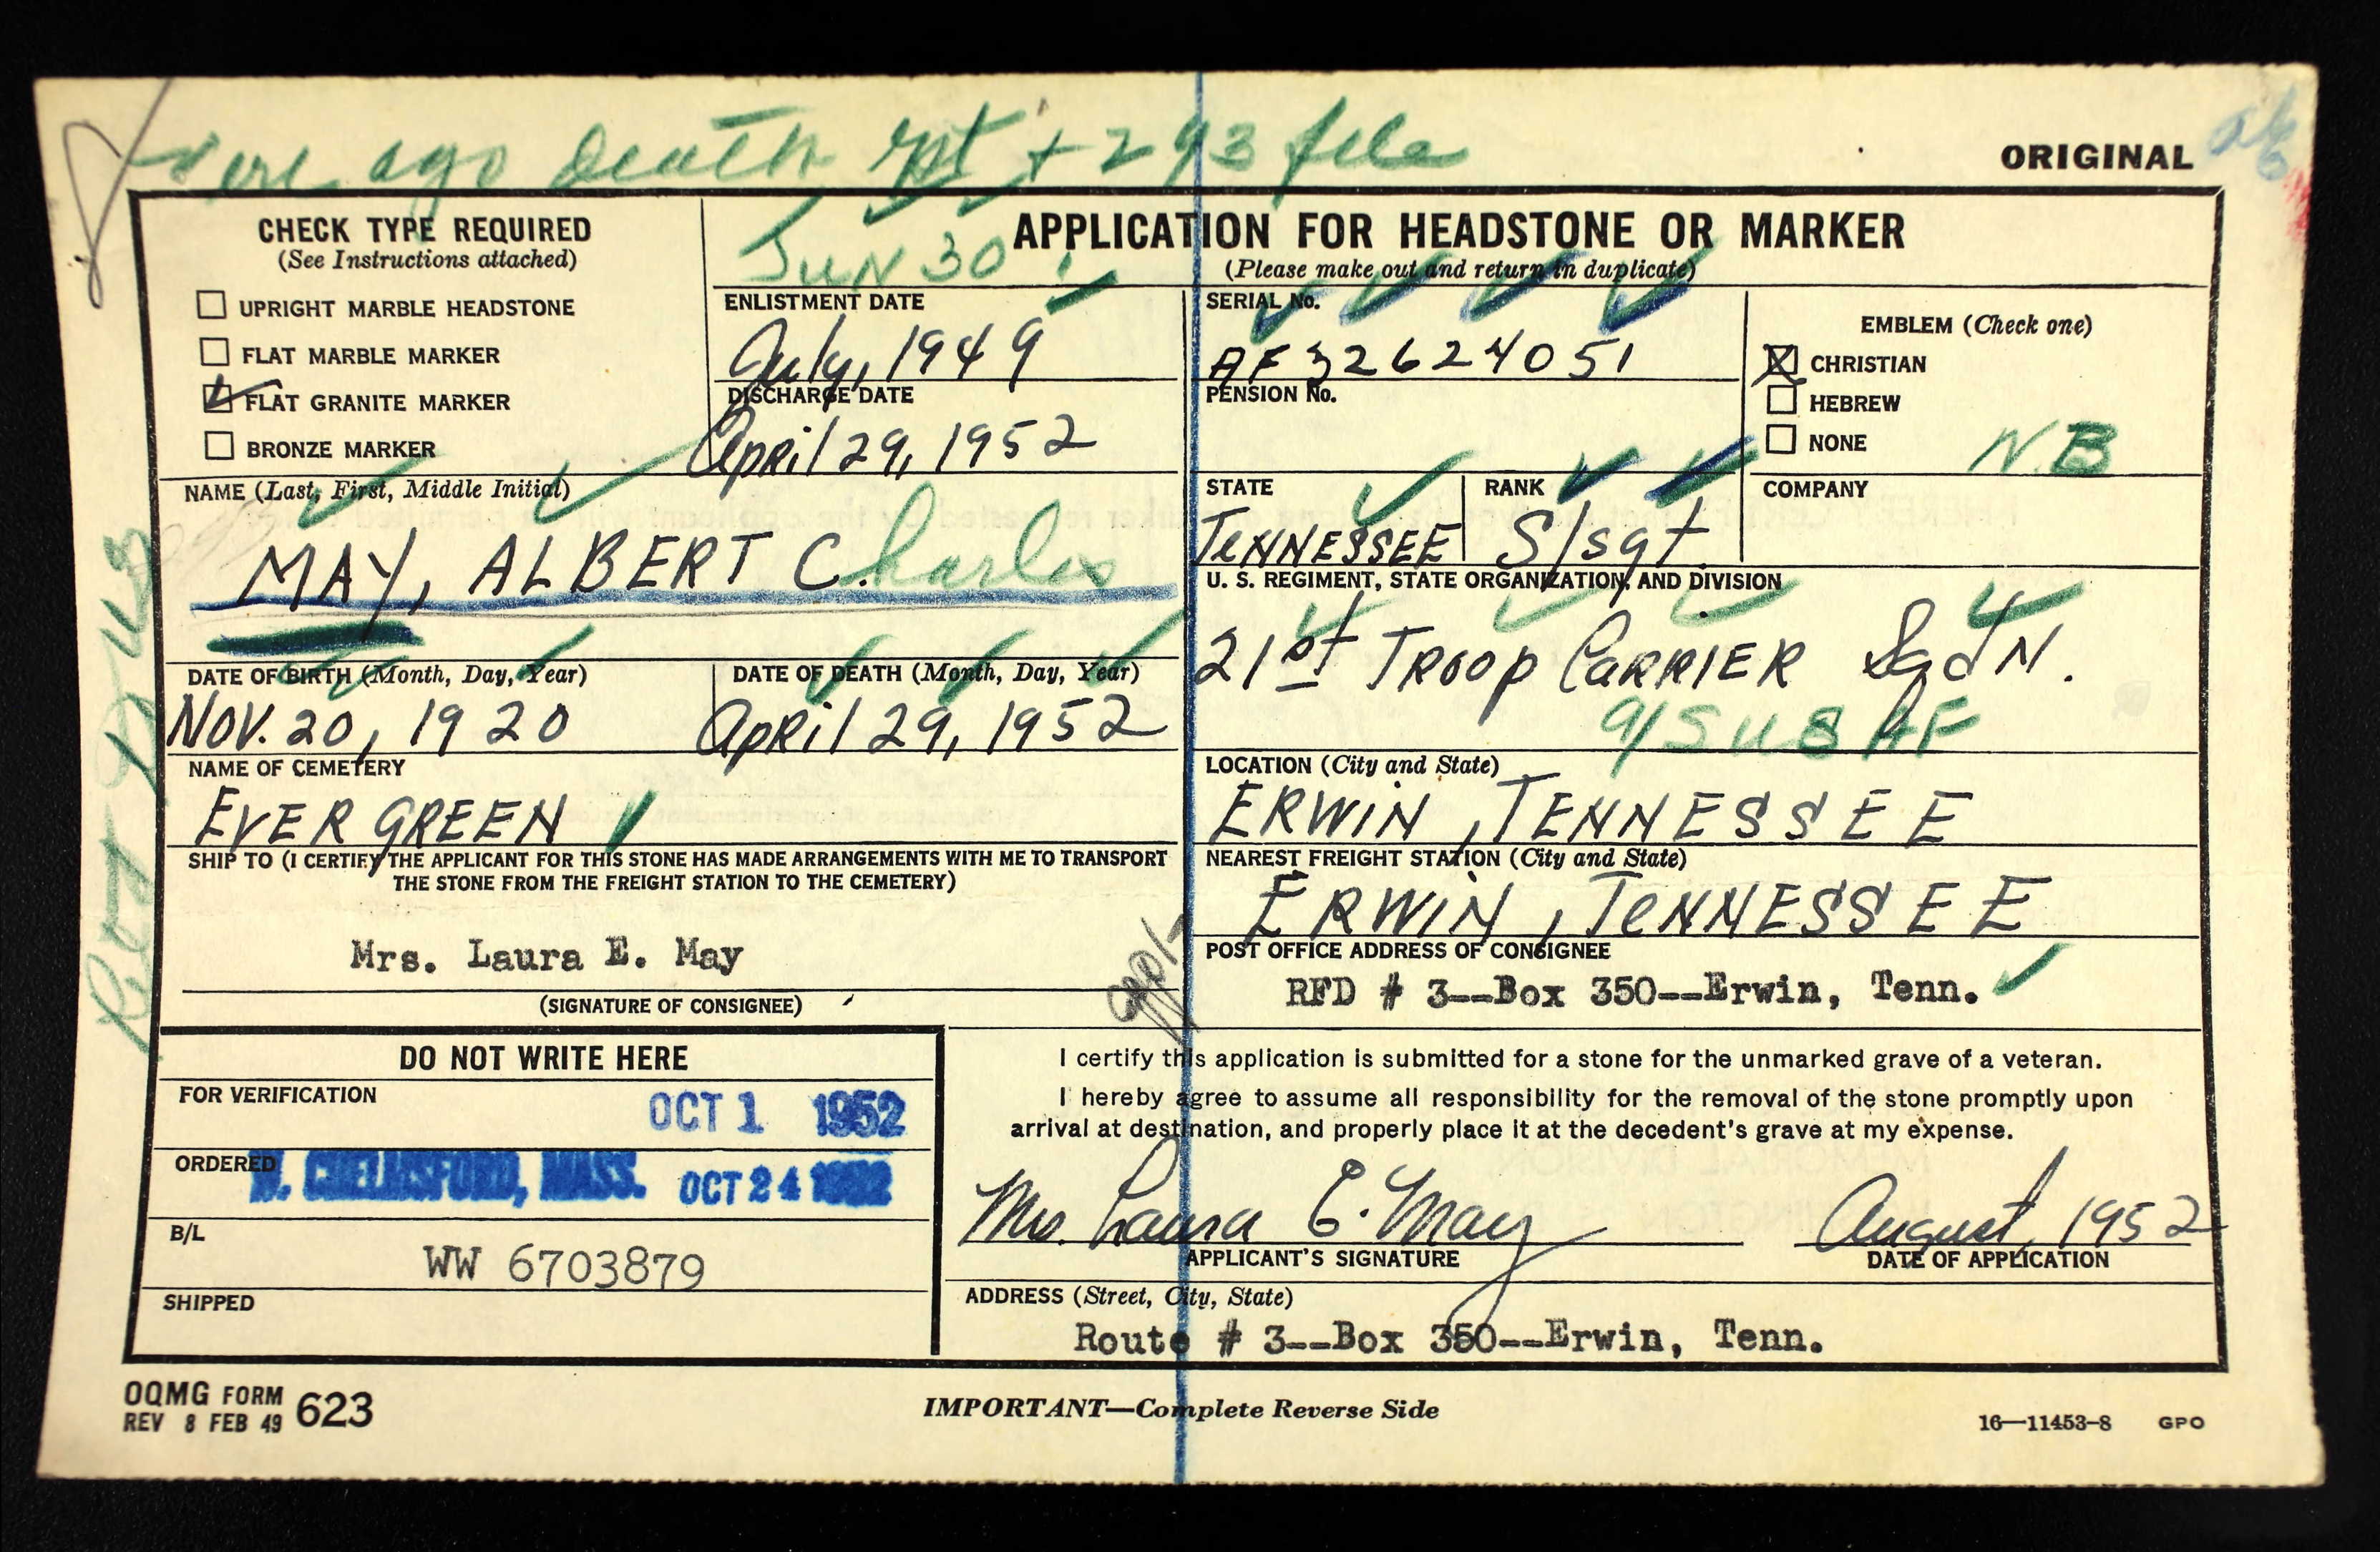 death rpt + 293 file
ORIGINAL
CHECK TYPE REQUIRED
(See Instructions attached)
UPRIGHT MARBLE HEADSTONE
FLAT MARBLE MARKER
FLAT GRANITE MARKER
BRONZE MARKER
JUN 30
APPLICATION FOR HEADSTONE OR MARKER
(Please make out and return in duplicate)
ENLISTMENT DATE
July, 1949
DISCHARGE DATE
April 29, 1952
SERIAL No.
AF 32624051
PENSION No.
EMBLEM (Check one)
CHRISTIAN
HEBREW
NONE
N.B
NAME (Last, First, Middle Initial)
MAY, ALBERT C. harles
STATE
TENNESSEE
RANK
S/sgt
COMPANY
U. S. REGIMENT, STATE ORGANIZATION, AND DIVISION
21st TROOP CARRIER SqdN.
DATE OF BIRTH (Month, Day, Year)
NOV. 20, 1920
DATE OF DEATH (Month, Day, Year)
April 29, 1952
NAME OF CEMETERY
EVER GREEN
LOCATION (City and State)
ERWIN, TENNESSEE
SHIP TO (I CERTIFY THE APPLICANT FOR THIS STONE HAS MADE ARRANGEMENTS WITH ME TO TRANSPORT
THE STONE FROM THE FREIGHT STATION TO THE CEMETERY)
Mrs. Laura E. May
(SIGNATURE OF CONSIGNEE)
NEAREST FREIGHT STATION (City and State)
ERWIN, TENNESSEE
POST OFFICE ADDRESS OF CONSIGNEE
RFD # 3--Box 350--Erwin, Tenn.
DO NOT WRITE HERE
FOR VERIFICATION
OCT 1 1952
ORDERED
W. CHELMSFORD, MASS. OCT 24 1952
B/L
WW 6703879
SHIPPED
I certify this application is submitted for a stone for the unmarked grave of a veteran.
I hereby agree to assume all responsibility for the removal of the stone promptly upon
arrival at destination, and properly place it at the decedent's grave at my expense.
Mrs. Laura E. May
APPLICANT'S SIGNATURE
August, 1952
DATE OF APPLICATION
ADDRESS (Street, City, State)
Route # 3--Box 350--Erwin, Tenn.
OQMG FORM 623
REV 8 FEB 49
IMPORTANT—Complete Reverse Side
16—11453-8 GPO